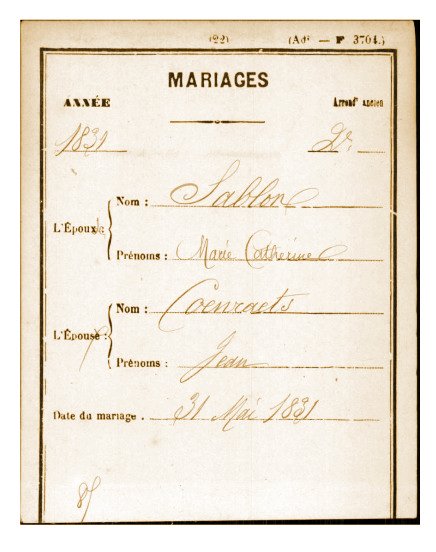 (22) (Adᵗ — F 3704.)
MARIAGES
ANNÉE Arrondᵗ ancien
1831 2ᵉ
L'Épouse Nom : Sablon
Prénoms : Marie Catherine
L'Époux Nom : Coenraets
Prénoms : Jean
Date du mariage . 31 Mai 1831